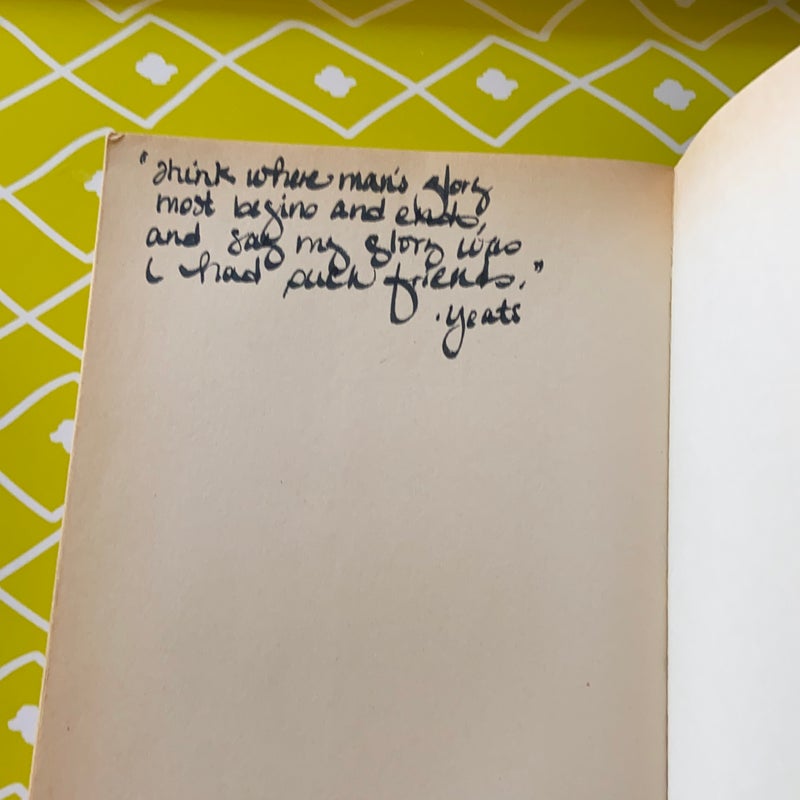 "think where man's glory
most begins and ends,
and say my glory was
i had such friends."
· Yeats